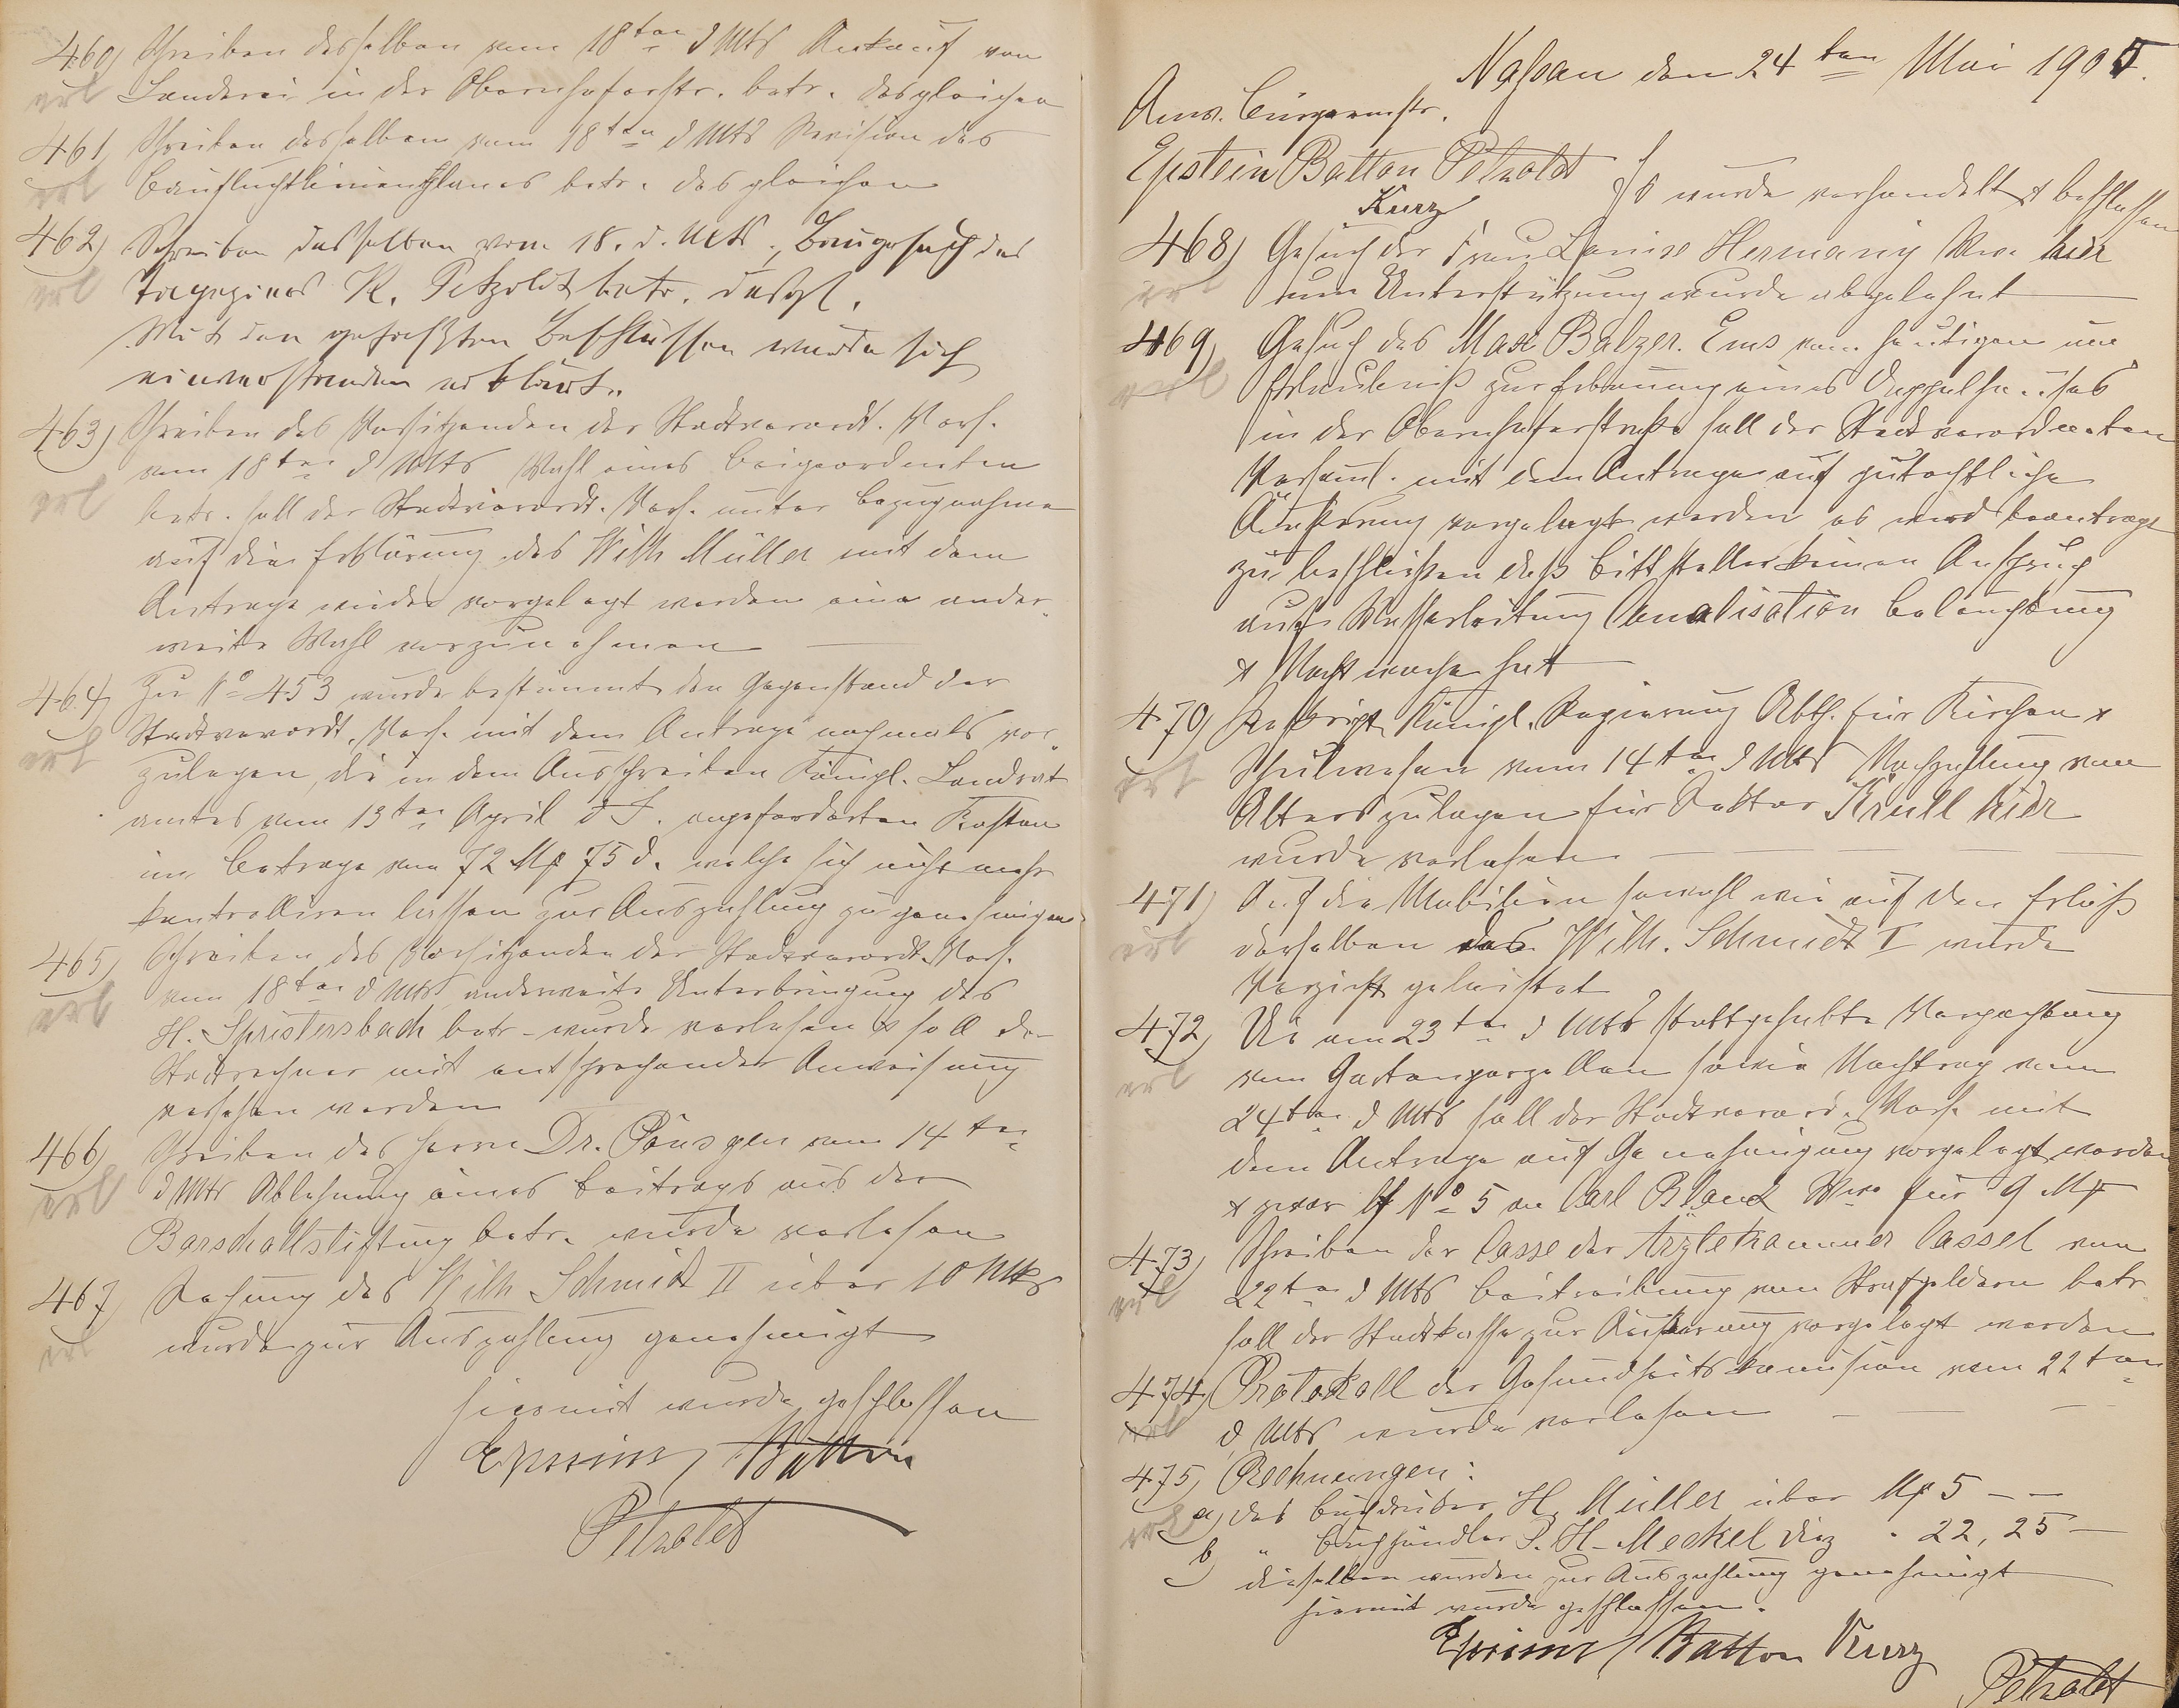 460) Schreiben desselben vom 18ten d Mts Ankauf von
erl Länderei in der Obernhoferstr. betr. desgleichen
461) Schreiben desselben vom 18ten d Mts Revision des
erl Baufluchtlinienplanes betr. desgleichen
462) Schreiben desselben vom 18. d. Mts., Baugesuch des
erl K. Petzoldt betr. desgl.
Mit den gefaßten Beschlüssen wurde sich
einverstanden erklärt.
463) Schreiben des Vorsitzenden der Stadtverordt. Vers.
vom 18ten d Mts Wahl eines Beigeordneten
erl betr. soll der Stadtverordt. Vers. unter Bezugnahme
auf die Erklärung des Wilh Müller mit dem
Antrage wieder vorgelegt werden eine ander-
weite Wahl vorzunehmen
464) Zu No 453 wurde bestimmt den Gegenstand der
erl Stadtverordt. Vers. mit dem Antrage nochmals vor-
zulegen, die in dem Ausschreiben Königl. Landrat
amtes vom 13ten April d J. angeforderten Kosten
im Betrage von 72 Mk 75 d. welche sich nicht mehr
kontrolliren lassen zur Auszahlung zu genehmigen
465) Schreiben des Vorsitzenden der Stadtverordt. Vers.
erl vom 18ten d Mts anderweite Unterbringung des
H. Spristersbach betr. wurde verlesen & soll der
Stadtrechner mit entsprechender Anweisung
versehen werden
466) Schreiben des Herrn Dr. Pönsgen vom 14ten
erl d Mts Ablehnung eines Beitrags aus der
Barschallstiftung betr. wurde verlesen
467) Rechnung des Wilh Schmidt II über 10 Mk
erl wurde zur Auszahlung genehmigt
hiermit wurde geschlossen
Epstein Batton
Petzoldt
Nassau den 24ten Mai 1905.
Anw. Bürgermstr.
Epstein Batton Petzoldt
Kurz
Es wurde verhandelt & beschlossen
468) Gesuch der Frau Louise Hermany Wwe hier
erl um Unterstützung wurde abgelehnt
469) Gesuch des Max Balzer. Ems vom heutigen um
erl Erlaubniß zur Erbauung eines Doppelhauses
in der Obernhoferstraße soll der Stadtverordneten
Versaml. mit dem Antrage auf gutachtliche
Äußerung vorgelegt werden es wird beantragt
zu beschließen daß Bittsteller keinen Anspruch
auf Wasserleitung Canalisation Beleuchtung
& Nachtwache hat
470) Reskript Königl. Regierung Abth. für Kirchen &
erl Schulwesen vom 14ten d Mts Nachzahlung von
Alterszulagen für Rektor Krull hier
wurde verlesen
471) Auf die Mobilien sowohl wie auf den Erlös
erl derselben des Wilh. Schmidt I wurde
Verzicht geleistet
472) Die am 23ten d Mts stattgehabte Verpachtung
erl von Gartenparzellen sowie Nachtrag vom
24ten d Mts soll der Stadtverord. Vers. mit
dem Antrage auf Genehmigung vorgelegt werden
& zwar No 5 an Carl Blank Wwe für 9 Mk
473) Schreiben der Casse der Ärztekammer Cassel vom
erl 22ten d Mts Beitreibung von Strafgeldern betr
soll der Stadtkasse zur Äußerung vorgelegt werden
474) Protokoll der Gesundheitskomission vom 22ten
erl d Mts wurde verlesen
475) Rechnungen:
erl a) des Buchdrucker H. Müller über Mk 5 – –
b) " Buchhändler P. H. Meckel Diez " 22,25 –
dieselben wurden zur Auszahlung genehmigt
hiermit wurde geschlossen.
Epstein Batton Kurz
Petzoldt